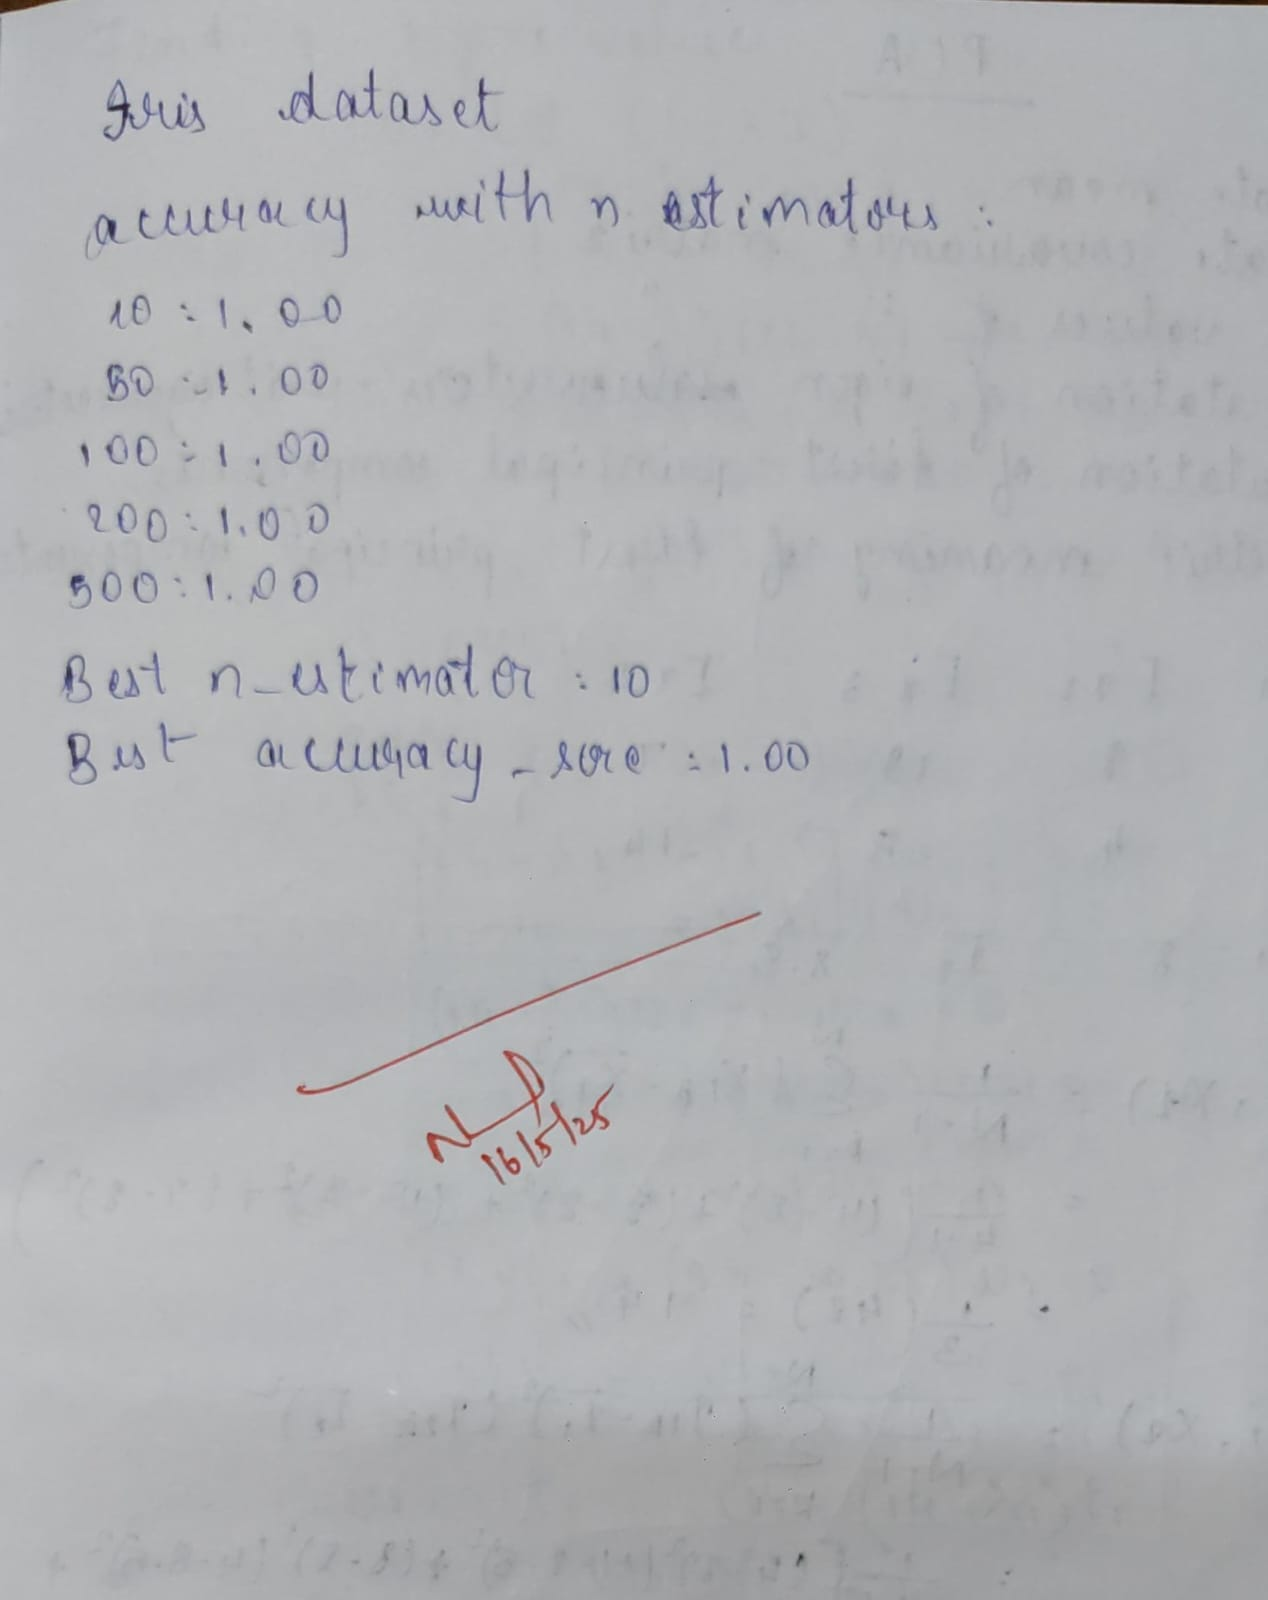 Iris dataset
accuracy with n estimators :
10 : 1.00
50 : 1.00
100 : 1.00
200 : 1.00
500 : 1.00
Best n_estimator : 10
Best accuracy - sore : 1.00
16/5/25